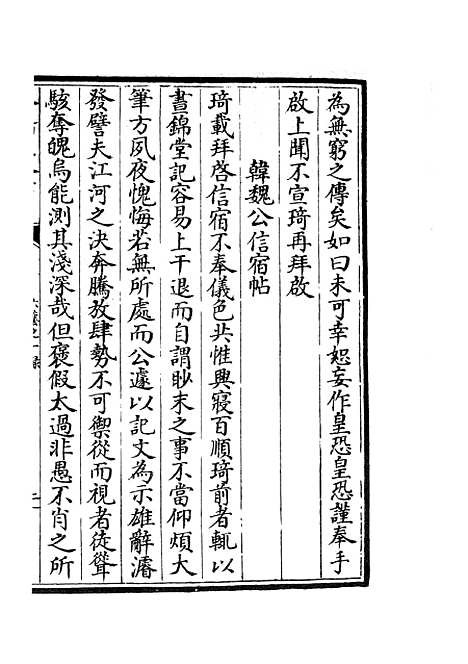 為無窮之傳矣如曰未可幸恕妄作皇恐皇恐謹奉手
啟上聞不宣琦再拜啟
韓魏公信宿帖
琦載拜啓信宿不奉儀色共惟興寢百順琦前者輒以
晝錦堂記容易上干退而自謂眇末之事不當仰煩大
筆方夙夜愧悔若無所處而公遽以記文為示雄辭濬
發譬夫江河之決奔騰放肆勢不可禦從而視者徒聳
駭奪魄烏能測其淺深哉但褒假太過非愚不肖之所